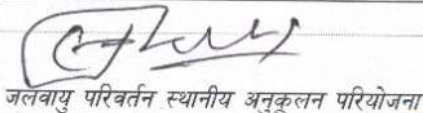 जलवायु परिवर्तन स्थानीय अनुकूलन परियोजना